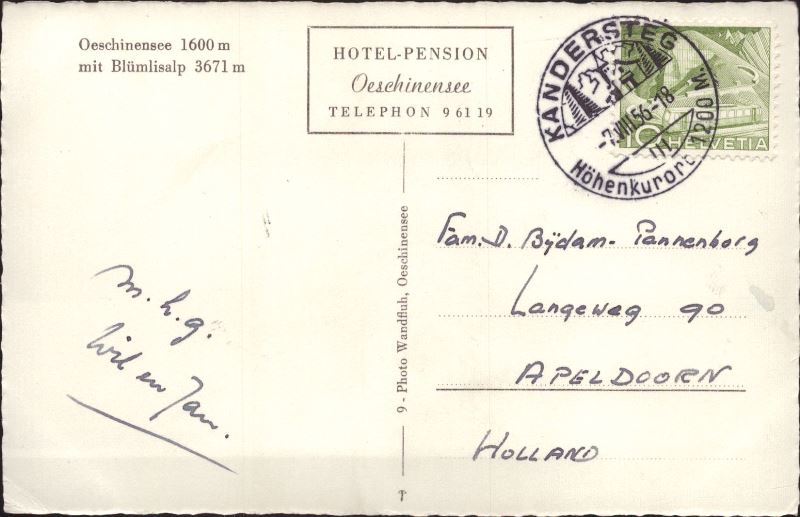 Oeschinensee 1600 m
mit Blümlisalp 3671 m
HOTEL-PENSION
Oeschinensee
TELEPHON 9 61 19
KANDERSTEG
-7.VIII.56-18
1200 M.
Höhenkurort
10 HELVETIA
9 - Photo Wandfluh, Oeschinensee
m.h.g.
Wil en Jan.
Fam. D. Bÿdam-Pannenborg
Langeweg 90
APELDOORN
HOLLAND